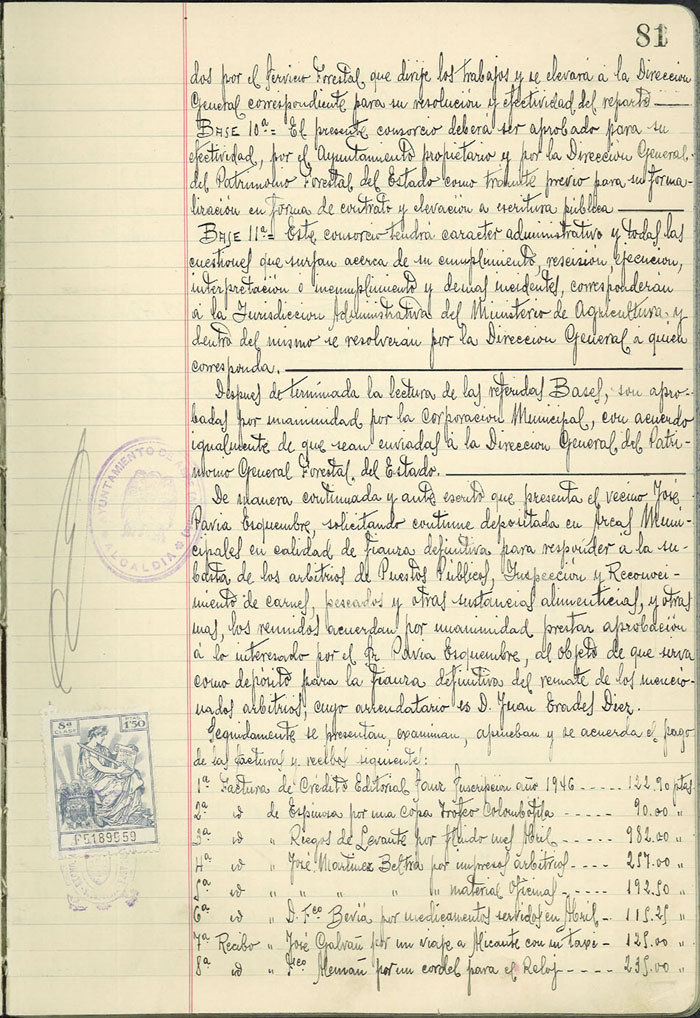 81
dos por el Servicio Forestal que dirije los trabajos y se elevará á la Direccion
General correspondiente para su resolución y efectividad del reparto
BASE 10ª = El presente consorcio deberá ser aprobado para su
efectividad, por el Ayuntamiento propietario y por la Dirección General
del Patrimonio Forestal del Estado como trámite previo para su forma-
lización en forma de contrato y elevación a escritura pública
BASE 11ª = Este consorcio tendrá caracter administrativo y todas las
cuestiones que surjan acerca de su cumplimiento, rescisión, ejecucion,
interpretación é incumplimiento y demás incidentes, corresponderan
á la Jurisdiccion Administrativa del Ministerio de Agricultura y
dentro del mismo se resolveran por la Direccion General a quien
corresponda.
Despues de terminada la lectura de las referidas Bases, son apro-
badas por unanimidad por la Corporacion Municipal, con acuerdo
igualmente de que sean enviadas á la Direccion General del Patri-
monio General Forestal del Estado.
De manera continuada y ante escrito que presenta el vecino José
Pavia Esquembre, solicitando continue depositada en Arcas Muni-
cipales en calidad de fianza definitiva para responder á la su-
basta de los arbitrios de Puestos Públicos, Inspeccion y Reconoci-
miento de carnes, pescados y otras sustancias alimenticias, y otras
mas, los reunidos acuerdan por unanimidad prestar aprobación
á lo interesado por el Sr. Pavia Esquembre, al objeto de que serva
como depósito para la fianza definitiva del remate de los mencio-
nados arbitrios, cuyo arrendatario es D. Juan Erades Diez.
Seguidamente se presentan, examinan, aprueban y se acuerda el pago
de las facturas y recibos siguiente:
1ª Factura de Crédito Editorial Sanz Inscripcion año 1946 ----- 122.90 ptas.
2ª id de Espinosa por una copa Trofeo Colombofila ----- 90.00 "
3ª id " Riegos de Levante por fluido mes Abril ---- 982.00 "
4ª id " José Martinez Beltrá por impresos arbitrios ---- 257.00 "
5ª id " " " " " material Oficinas ---- 192.50 "
6ª id " D. Fco Beviá por medicamentos servidos en Abril - 115.25 "
7ª Recibo " José Galvañ por un viaje a Alicante con su taxi - 125.00 "
8ª id " Fco Alemañ por un cordel para el Reloj ----- 235.00 "
AYUNTAMIENTO DE
ALCALDIA
8ª CLASE
1'50
F5189559